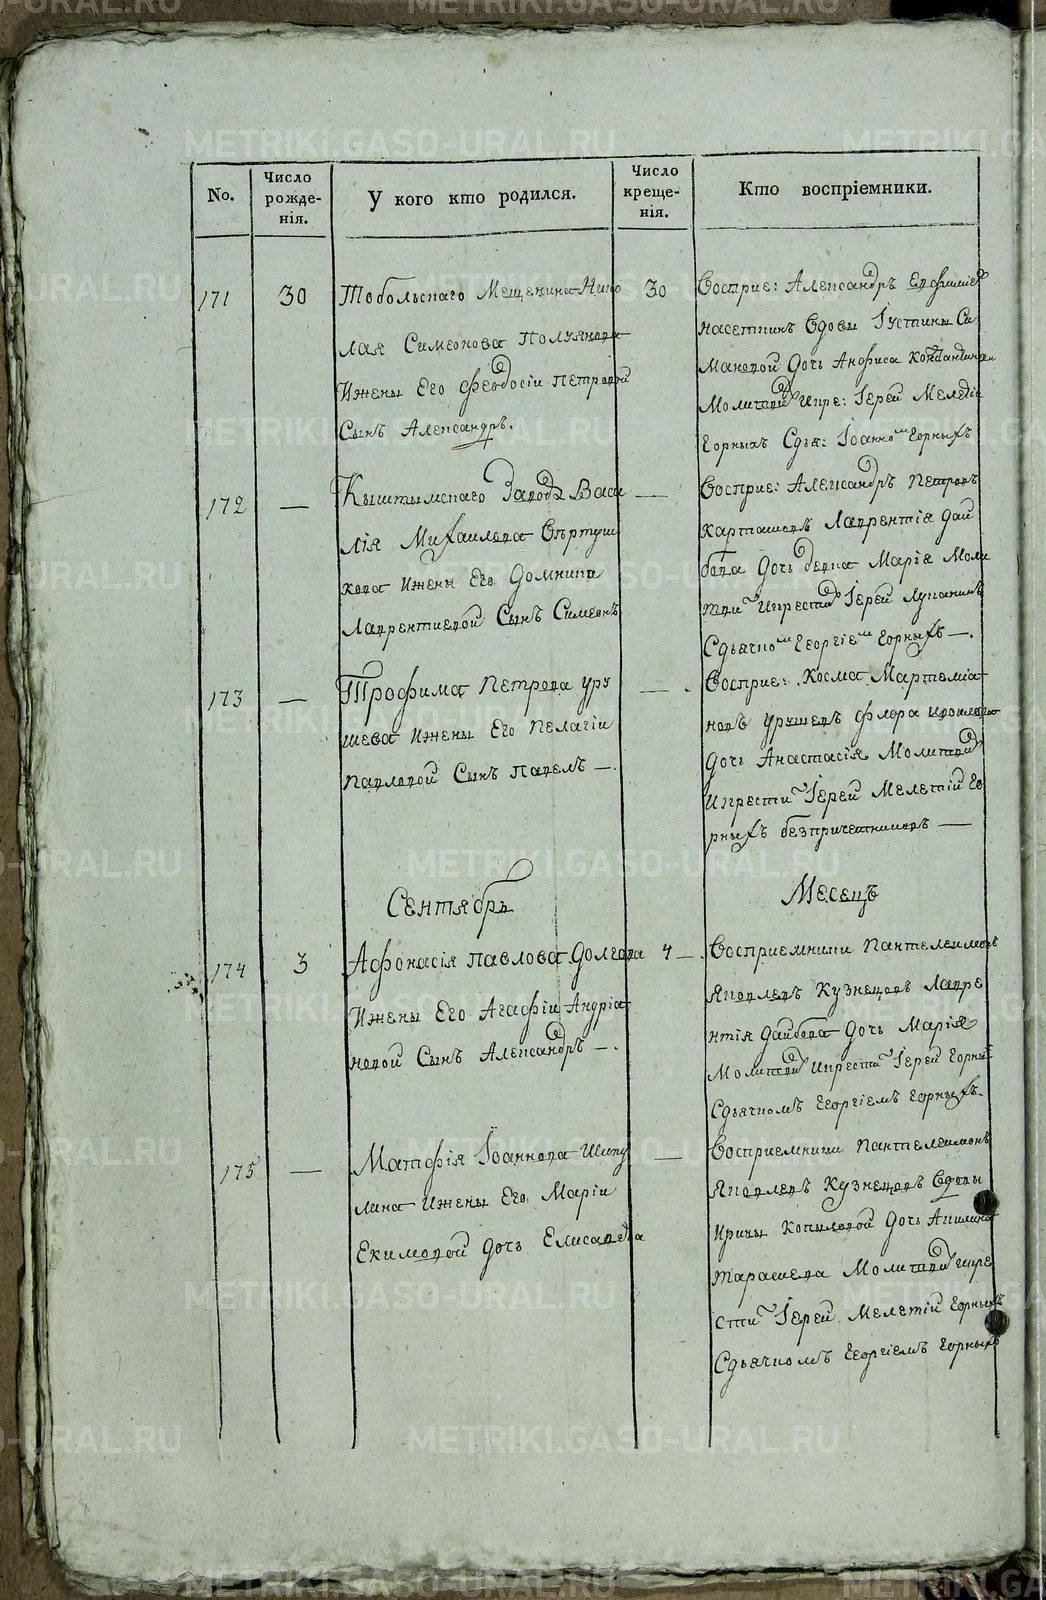 METRIKI.GASO-URAL.RU
No.
Число рожде-
нія.
У кого кто родился.
Число
креще-
нія.
Кто воспріемники.
171
30
Тобольскаго Мещенина Нико
лая Симеонова
Ижены Его Феодосіи Петровой
Сынъ Александръ.
30
Восприе: Александръ
Вдовы Іустины Си
мановой Дочь Анфиса
Молитвой Икре: Іерей Мелетiй
Горныхъ Сдья: Іоанном Горныхъ
172
—
Кыштымскаго Завода Васи
лія Михаилова Вѣртуш
кова Иженый Его Домники
Лаврентиевой Сынъ Симеонъ
—
Восприе: Александръ Петровъ
Карташовъ Лаврентія Дай
бова Дочь девка Марія Моли
тви Икрести Іерей Лукианъ
Сдьячком Георгіем Горныхъ —.
173
—
Трофима Петрова Уру
шева Иженый Его Пелагіи
Павловой Сынъ Павелъ —.
—
Восприе: Косма Мартеміа
новъ Урушевъ Флора
Дочь Анастасія Молитвой
Икрести Іерей Мелетій Го
рныхъ безпричетниковъ —
Сентябрь
Месецъ
174
3
Афонасія Павлова Долгова
Иженый Его Агафіи Андріа
новой Сынъ Александръ —.
4 —
Восприемники Пантелеимонъ
Яковлевъ Кузнецовъ Лавре
нтія Дайбова Дочь Марія
Молитвой Икрести Іерей Горных
Сдьячкомъ Георгіемъ Горныхъ.
175
—
Матфія Іоаннова Шику
лина Иженый Его Маріи
Екимовой Дочь Елисавета
—
Восприемники Пантелеимонъ
Яковлевъ Кузнецовъ Вдовы
Ирины Копыловой Дочь Акилина
Тарашева Молитвой Икре
сти Іерей Мелетій Горныхъ
Сдьячкомъ Георгіемъ Горныхъ